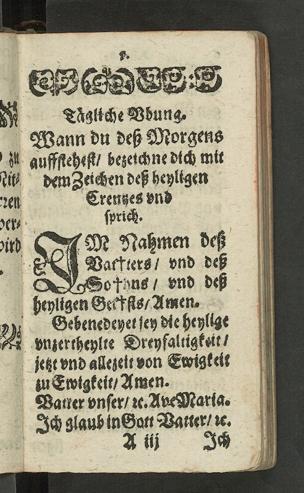 5.
Tägliche Vbung.
Wann du deß Morgens
auffstehest/ bezeichne dich mit
dem Zeichen deß heyligen
Creutzes vnd
sprich.
IM Nahmen deß
Vat†ters/ vnd deß
So†hns/ vnd deß
heyligen Gei†sts/ Amen.
Gebenedeyet sey die heylige
vnzertheylte Dreyfaltigkeit/
jetzt vnd allezeit von Ewigkeit
zu Ewigkeit/ Amen.
Vatter vnser/ ꝛc. Ave Maria.
Ich glaub in Gott Vatter/ ꝛc.
A iij Ich